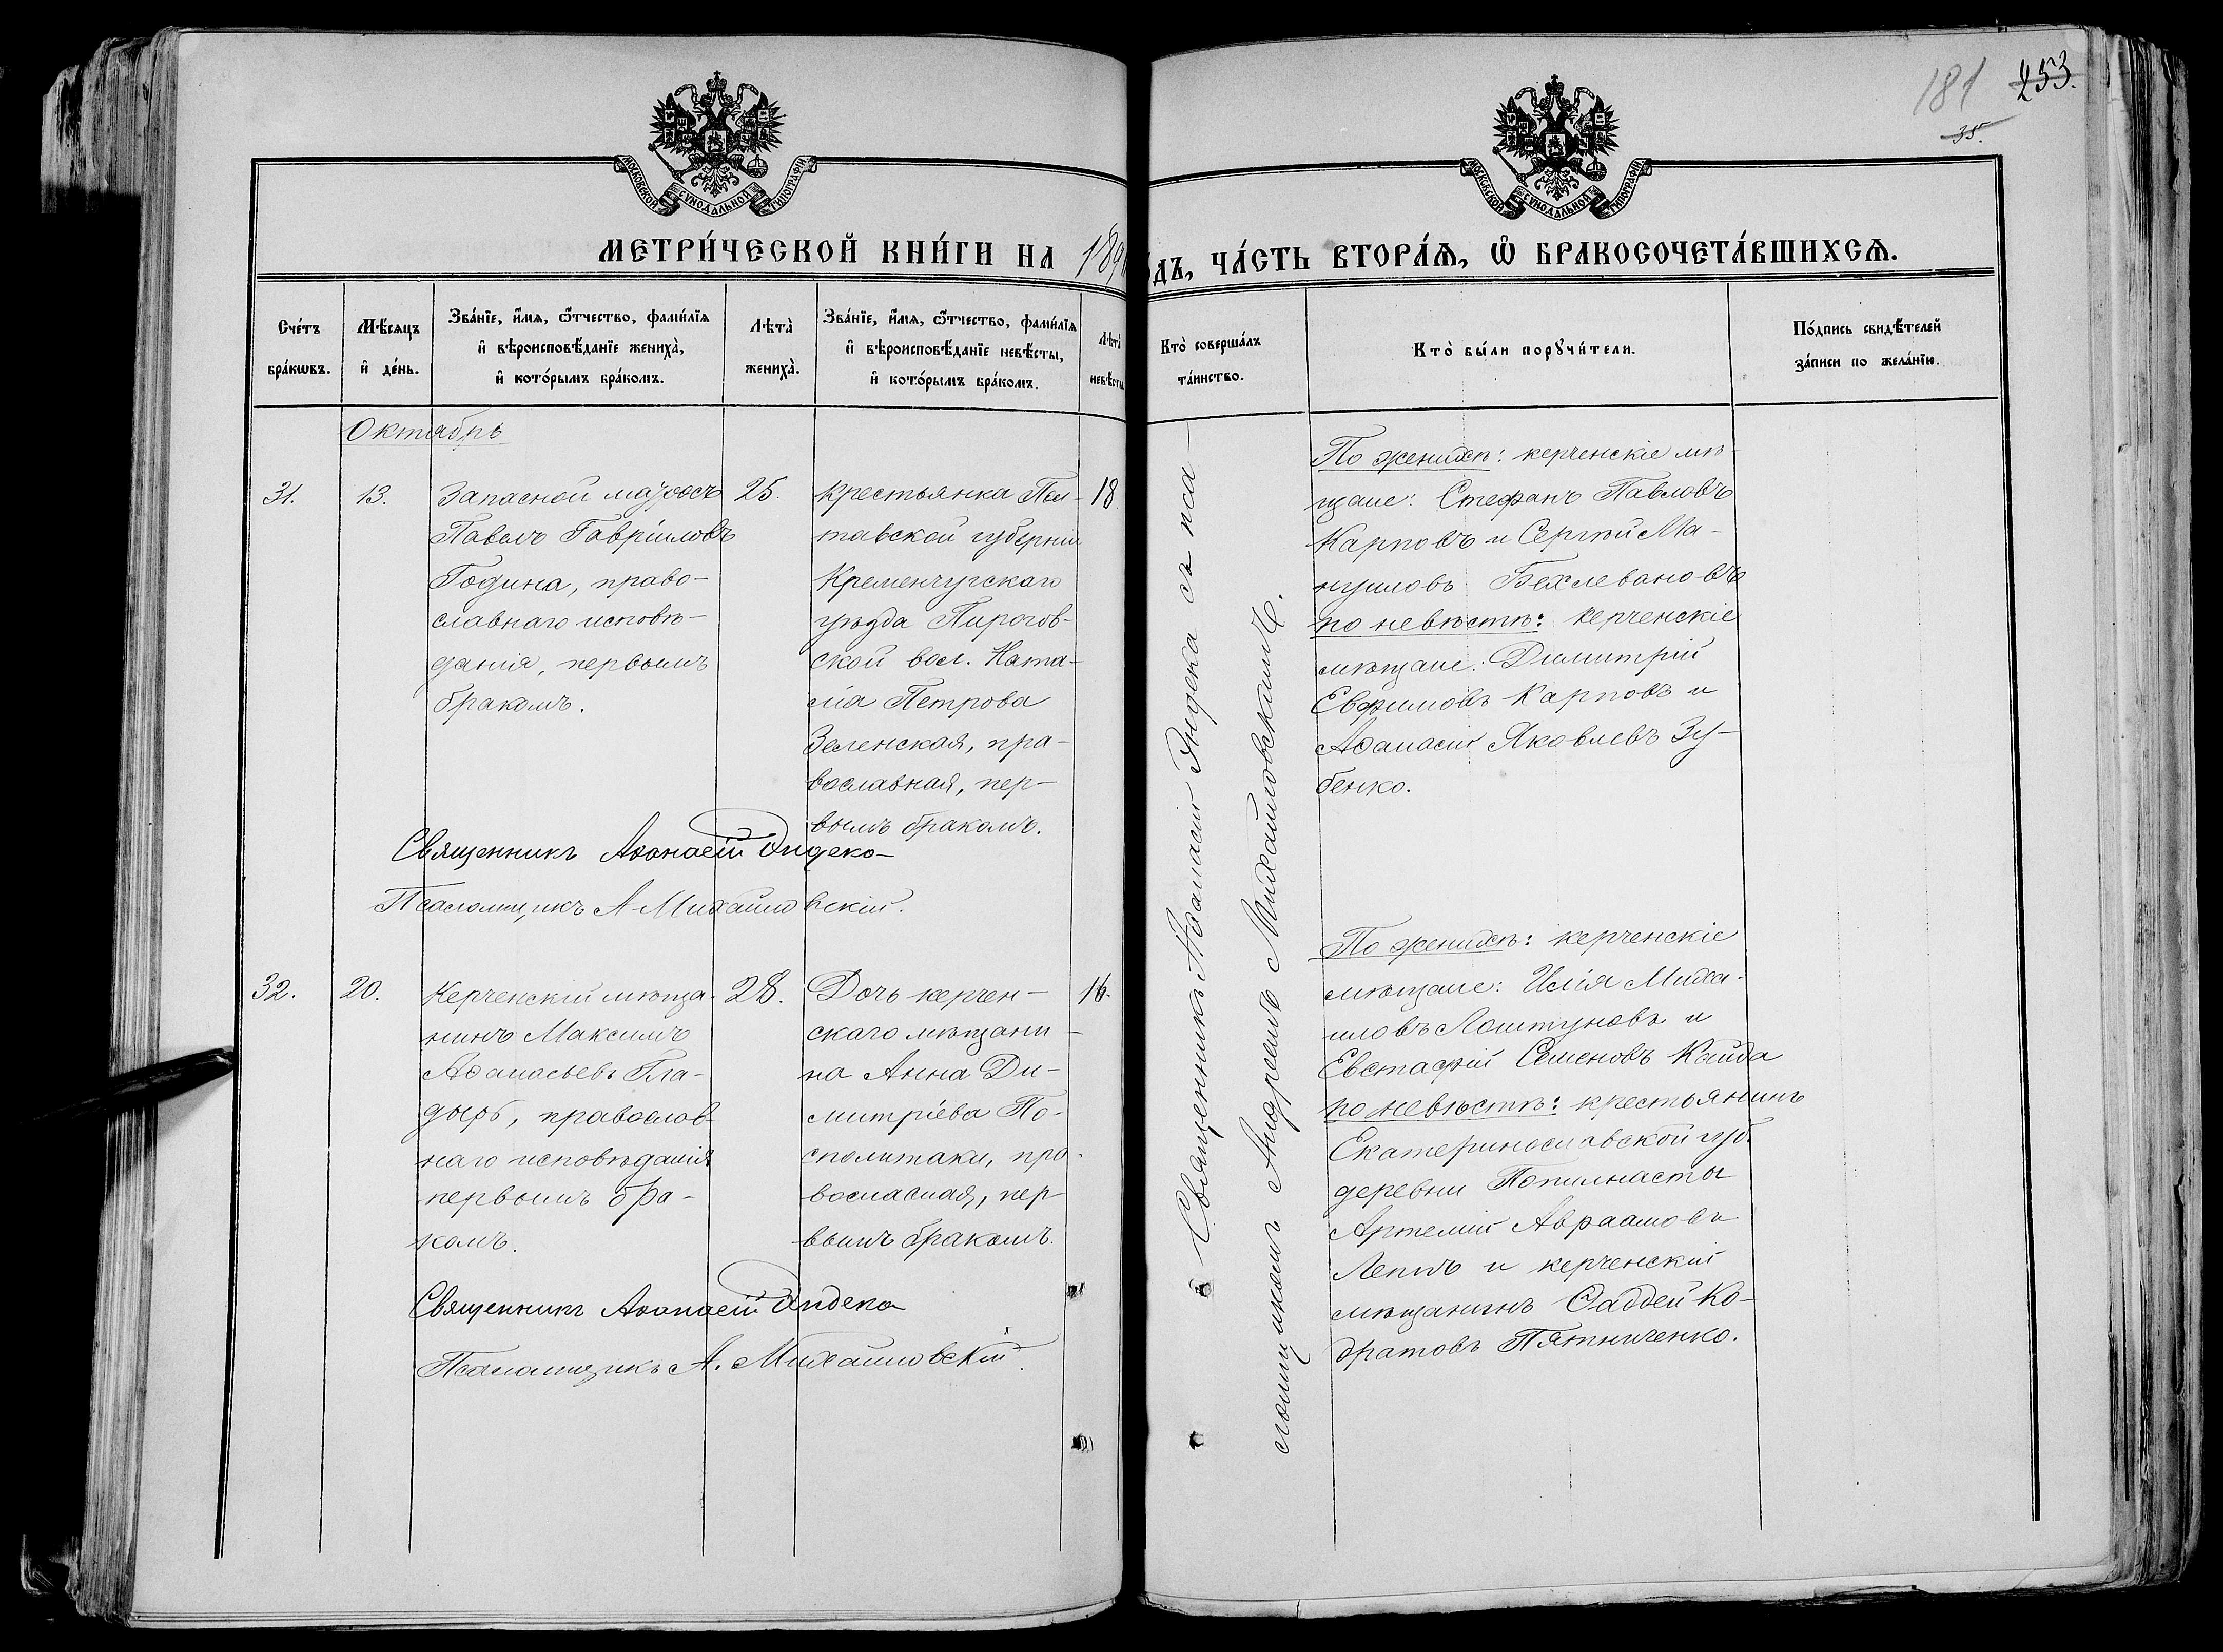 181 253.
35.
МОСКОВСКОЙ СѴНОДАЛЬНОЙ ТИПОГРАФІИ
МОСКОВСКОЙ СѴНОДАЛЬНОЙ ТИПОГРАФІИ
МЕТРИ́ЧЕСКОЙ КНИ́ГИ НА 189
ДЪ, ЧА́СТЬ ВТОРА́Ѧ, Ѡ҆ БРАКОСОЧЕТА́ВШИХСѦ.
Сче́тъ бра́кѡвъ.
Мѣ́сяцъ и҆ де́нь.
Зва́нїе, и҆́мѧ, ѻ҆́тчество, фами́лїѧ
и҆ вѣроисповѣ́данїе жениха̀,
и҆ кото́рымъ бра́комъ.
Лѣта̀ жениха̀.
Зва́нїе, и҆́мѧ, ѻ҆́тчество, фами́лїѧ
и҆ вѣроисповѣ́данїе невѣ́сты,
и҆ кото́рымъ бра́комъ.
Лѣта̀ невѣ́сты
Кто̀ соверша́лъ та́инство.
Кто̀ бы́ли порꙋчи́тели.
По́дпись свидѣ́телей за́писи по жела́нїю.
Октябрь
31.
13.
Запасной матросъ
Павелъ Гавріиловъ
Година, право-
славнаго исповѣ-
данія, первымъ
бракомъ.
25.
Крестьянка Пол-
тавской губерніи
Кременчугскаго
уѣзда Пирогов-
ской вол. Ната-
лія Петрова
Зеленская, пра-
вославная, пер-
вымъ бракомъ.
18
Священникъ Аѳанасій Яндека съ пса-
ломщикомъ Андреемъ Михайловскимъ.
По женихѣ: керченскіе мѣ-
щане: Стефанъ Павловъ
Карповъ и Сергѣй Ма-
нуиловъ Бехлевановъ
по невѣстѣ: керченскіе
мѣщане: Димитрій
Евфимовъ Карповъ и
Аѳанасій Яковлевъ Зу-
бенко.
Священникъ Аѳанасій Яндеко
Псаломщикъ А. Михайловскій.
32.
20.
Керченскій мѣща-
нинъ Максимъ
Аѳанасьевъ Гла-
дырь, православ-
наго исповѣданія
первымъ бра-
комъ.
28.
Дочь керчен-
скаго мѣщани-
на Анна Ди-
митріева По-
сполитаки, пра-
вославная, пер-
вымъ бракомъ.
16.
По женихѣ: керченскіе
мѣщане: Илія Миха-
иловъ Лоштуновъ и
Евстафій Семеновъ Кайда
по невѣстѣ: крестьянинъ
Екатеринославской губ.
деревни Попильнасты
Артемій Авраамовъ
Лепилъ и керченскій
мѣщанинъ Ѳаддей Ко-
дратовъ Пятниченко.
Священникъ Аѳанасій Яндека
Псаломщикъ А. Михайловскій.